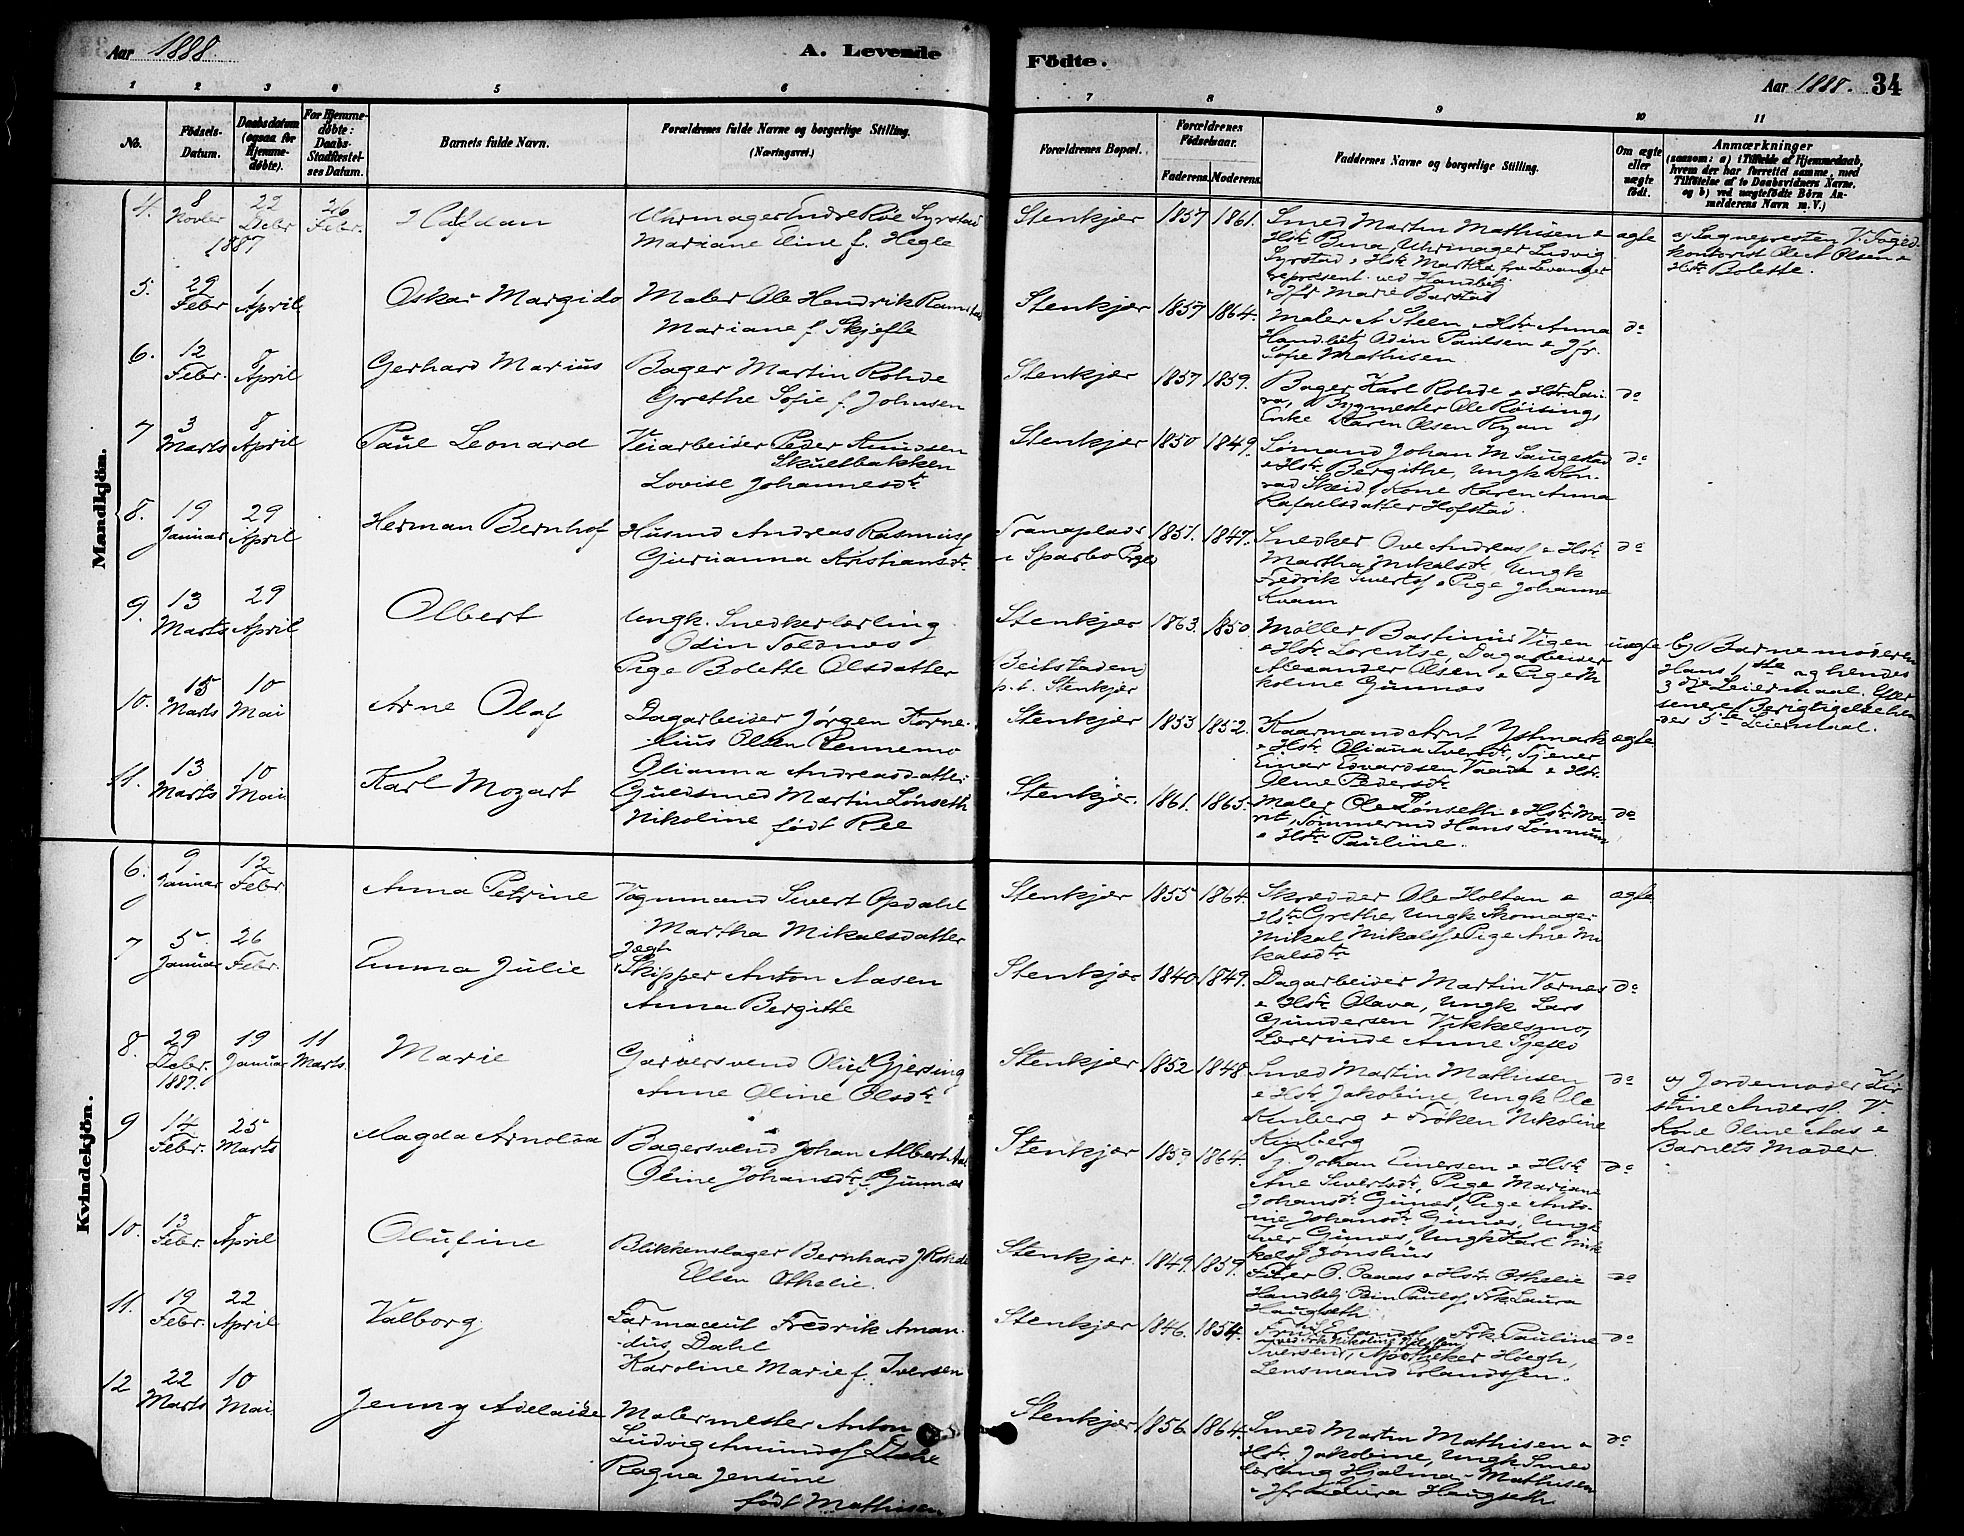 Aar 1888.
A. Levende
Födte.
Aar 1888. 34
1 2 3 4 5 6 7 8 9 10 11
No.
Födsels-Datum.
Daabsdatum (ogsaa for Hjemmedøbte).
For Hjemmedøbte: Daabs-Stadfæstelses Datum.
Barnets fulde Navn.
Forældrenes fulde Navne og borgerlige Stilling. (Næringsvei.)
Forældrenes Bopæl.
Forældrenes Födselsaar.
Faderens. Moderens.
Faddernes Navne og borgerlige Stilling.
Om ægte eller uægte födt.
Anmærkninger
(saasom: a) i Tilfælde af Hjemmedaab, hvem der har forrettet samme, med Tilföielse af to Daabsvidners Navne, og b) ved uægtefödte Börn Anmelderens Navn m. V.)
Mandkjön.
4. 8 Novbr 22 Decbr 1887 26 Febr. Halfdan
Uhrmager Endre Roe Syrstad
Mariane Eline f. Hegle
Stenkjær 1857 1861.
Smed Martin Mathisen &
Hstr Bina, Uhrmager Ludvig
Syrstad & Hstr Martha fra Levanger
represent. ved Handlbtj
& Jfr Marie Barstad
ægte
a) Sognepresten V. Foged-
kontorist Olect Olsen &
Hstr Bolette.
5. 29 Febr 1 April Oskar Margido
Maler Ole Hendrik Ramstad
Mariane f. Skjefle
Stenkjær 1857 1864.
Maler A Steen & Hstr Anna
Handlbtj Odin Paulsen & Jfr.
Sofie Mathisen
do
6. 12 Febr. 8 April Gerhard Marius
Bager Martin Rohde
Grethe Sofie f. Johnsen
Stenkjær 1857 1859.
Bager Karl Rohde & Hstr Lau-
ra, Bygmester Ole Røising,
Enke Karen Olsen Ryan
do
7 3 Marts 8 April Paul Leonard
Veiarbeider Peder Amundsen
Skuetbakken
Lovise Johannesdtr
Stenkjær 1850 1849.
Sømand Johan M Saugestad
& Hstr Bergithe, Ungk Kon-
rad Skeid, Kone Karen Anna
Rafaelsdatter Hofstad.
do
8. 19 Januar 29 April Herman Bernhof
Husmd Andreas Rasmuss
Gurianna Kristiansdtr
Tranaplads
i Sparbo Prgld
1851. 1847.
Snedker Ove Andreass & Hstr
Martha Mikalsdtr Ungk
Fredrik Sivertss & Pige Johanne
Kvam
do
9. 13 Marts 29 April Olbert
Ungk. Snedkerlærling
Odin Foldnes
Pige Bolette Olsdatter
Stenkjær
Beitstaden,
p.t. Stenkjær
1863. 1850.
Møller Bastinus Vigen
& Hstr Lorentse, Dagarbeider
Alexander Olsen & Pige M
koline Gunnes
uægte
b) Barnemoderen
Hans 1ste og hendes
3dje Leiermaal. Efter
senere Berigtigelse hen-
des 5te Leiermaal.
10. 15 Marts 10 Mai Arne Olaf
Dagarbeider Jørgen Korne-
lius Olsen Rennemo
Olianna Andreasdatter
Stenkjær 1853 1852.
Kaarmand Arnt Ystmark
& Hstr Oliana Iversdtr, Tjener
Einar Edvardsen Vaade & Hstr
Oline Pedersdtr
ægte
11. 13 Marts 10 Mai Karl Mozart
Guldsmed Martin Lønseth
Nikoline født Ree
Stenkjær. 1861. 1865.
Maler Ole Lønseth & Hstr Ma-
rit, Tømmermd Hans Lønnum
& Hstr Pauline.
do
Kvindekjön.
6. 9 Januar 12 Febr Anna Petrine
Vognmand Sivert Opdahl
Martha Mikalsdatter
Stenkjær 1855 1864.
Skrædder Ole Holtan &
Hstr Grethe, Ungk Skomager
Mikal Mikalss & Pige Ane Mi
kalsdtr
ægte
7 5 Januar 26 Febr. Emma Julie
Jægt
Skipper Anton Aasen
Anna Bergitte
Stenkjær 1840 1849.
Dagarbeider Martin Værnes
& Hstr Olava, Ungk Lars
Gundersen Vikkelsmo,
Lærerinde Anne Tjeflo
do
8. 29 Decbr. 1887. 19 Januar 11 Marts. Marie
Garversvend Oluf Gjersing
Anne Oline Olsdtr
Stenkjær 1852 1848.
Smed Martin Mathisen
& Hstr Jakobine, Ungk Ole
Kinberg & Frøken Nikoline
Kinberg
do
a) Jordemoder Kir
stine Anderss. V.
Kone Oline Aas &
Barnets Moder.
9 14 Febr. 25 Marts Magda Arnolda
Bagersvend Johan Albert Aas
Oline Johansdtr f. Gunnes
Stenkjær 1859 1864.
Tj. Johan Einersen & Hstr
Ane Sivertsdtr, Pige Mariane
Johansdtr Gunes, Pige Anto-
ne Johansdtr Gunes, Ungk
Iver Gunes, Ungk Karl Mik
kelss Grønshus
do
10. 13 Febr. 8 April Olufine
Blikkenslager Bernhard J. Rohde
Ellen Othelie.
Stenkjær. 1849. 1859.
Furer O. Paaas & Hstr Othelie
Handlbtj Odin Paulss, Frk Laura
Haugseth
do
11. 19 Febr. 22 April Valborg
Farmaceut Fredrik Aman-
dus Dahl
Karoline Marie f. Iversen
Stenkjær 1846. 1854.
Fru Erlands, Frk Pauline
ved Frk Nikoline
Iversen, Apotheker Høegh,
Lensmand Erlandssen.
do
12 22 Marts 10 Mai Jenny Adelaide
Malermester Anton
Ludvig Amundss Dahl
Ragna Jensine
født Mathisen
Stenkjær 1856. 1864.
Smed Martin Mathisen &
Hstr Jakobine, Ungk. Smed
lærling Hjalmar Mathisen
& Jfr Laura Haugseth
do